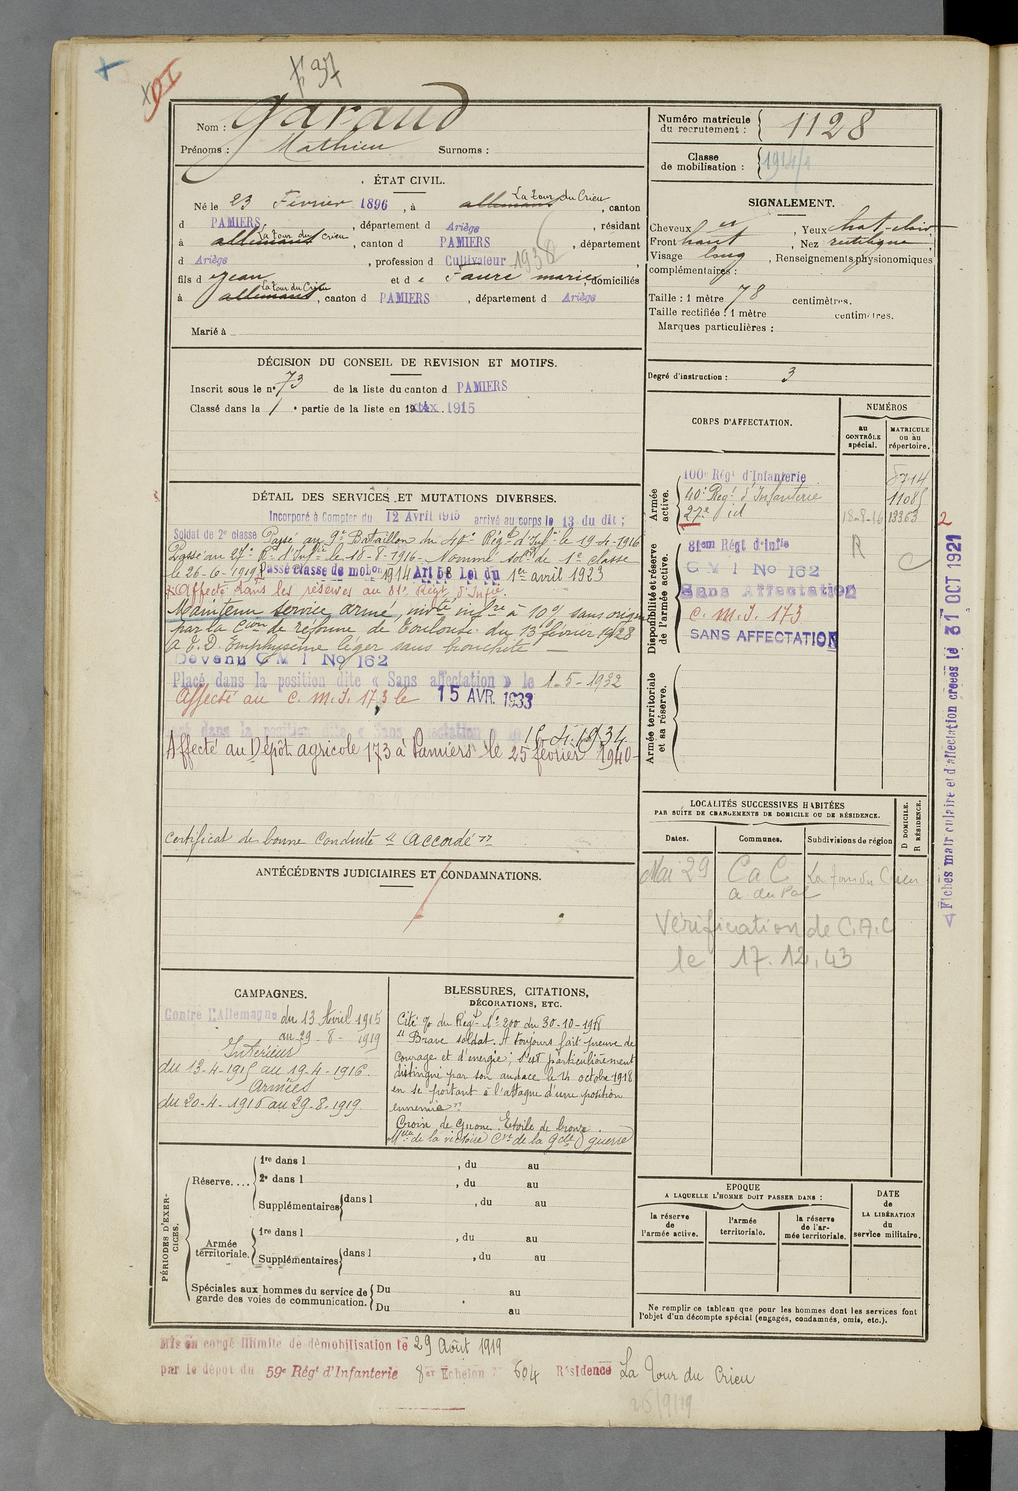 37
Nom : Garaud
Prénoms : Mathieu Surnoms :
Numéro matricule du recrutement : 1128
Classe de mobilisation : 1914/1
ÉTAT CIVIL.
Né le 23 Février 1896, à allemans La tour du Crieu, canton
d PAMIERS, département d Ariège, résidant
à allemans La tour du Crieu, canton d PAMIERS, département
d Ariège, profession d Cultivateur 1938
fils d e Jean et d e Faure marie, domiciliés
à allemans La tour du Crieu, canton d PAMIERS, département d Ariège
Marié à
SIGNALEMENT.
Cheveux Yeux chat-clair
Front haut, Nez rectiligne
Visage long, Renseignements physionomiques
complémentaires :
Taille : 1 mètre 78 centimètres.
Taille rectifiée : 1 mètre centimètres.
Marques particulières :
Degré d'instruction : 3
DÉCISION DU CONSEIL DE REVISION ET MOTIFS.
Inscrit sous le n° 73 de la liste du canton d PAMIERS
Classé dans la 1 e partie de la liste en 19 1915
DÉTAIL DES SERVICES ET MUTATIONS DIVERSES.
Incorporé à Compter du 12 Avril 1915 arrivé au corps le 13 du dit ;
Soldat de 2e classe Passé au 9e Bataillon du 40e Régt d'Infie le 19-4-1916
Passé au 27e Rt d'Infie le 18-8-1916 - Nommé soldt de 1e classe
le 26-6-1919 Passé classe de mobon 1914 Art 58 Loi du 1er avril 1923
Affecté dans les réserves au 81e Régt d'Infie.
Maintenu service armé, invté infre à 10% sans origine
par la Cion de réforme de Toulouse du 13 février 1923
à E.D. Emphysème léger sans bronchite -
Devenu C M I No 162
Placé dans la position dite « Sans affectation » le 1-5-1932
affecté au C.M.I. 173 le 15 AVR. 1933
dans la position dite « Sans affectation
Affecté au Dépôt agricole 173 à Pamiers le 25 février 1940-
certificat de bonne conduite "accordé"
CORPS D'AFFECTATION.
NUMÉROS
au CONTRÔLE spécial.
MATRICULE ou au répertoire.
Armée active.
100e Régt d'Infanterie 8714
40e Régt d'Infanterie
27e id 18-8-16 13363
Disponibilité et réserve de l'armée active.
81em Régt d'Infie
C M I No 162
Sans Affectation
C.M.I. 173
SANS AFFECTATION
R
C
Armée territoriale et sa réserve.
2
Fiches matriculaire et d'affectation créées le 31 OCT 1921
LOCALITÉS SUCCESSIVES HABITÉES
PAR SUITE DE CHANGEMENTS DE DOMICILE OU DE RÉSIDENCE.
D DOMICILE.
R RÉSIDENCE.
Dates. Communes. Subdivisions de région
Mai 29 CaC La Tour du Crieu
Vérification de C.A.C
le 17.12.43
ANTÉCÉDENTS JUDICIAIRES ET CONDAMNATIONS.
CAMPAGNES.
Contre l'Allemagne du 13 Avril 1915
au 29-8-1919
Intérieur
du 13-4-1915 au 19-4-1916.
Armées
du 20-4-1916 au 29.8.1919.
BLESSURES, CITATIONS,
DÉCORATIONS, ETC.
Cité o/ du Régt No 200 du 30-10-1918
"Brave soldat. A toujours fait preuve de
courage et d'énergie ; s'est particulièrement
distingué par son audace le 14 octobre 1918
en se portant à l'attaque d'une position
ennemie"
Croix de Guerre. Etoile de bronze.
Mlle de la victoire Cve de la Gde guerre
PÉRIODES D'EXERCICES.
Réserve....
1re dans l , du au
2e dans l , du au
Supplémentaires dans l , du au
Armée territoriale.
1re dans l , du au
Supplémentaires dans l , du au
Spéciales aux hommes du service de garde des voies de communication.
Du au
Du au
EPOQUE
A LAQUELLE L'HOMME DOIT PASSER DANS :
la réserve de l'armée active.
l'armée territoriale.
la réserve de l'armée territoriale.
DATE de LA LIBÉRATION du service militaire.
Ne remplir ce tableau que pour les hommes dont les services font
l'objet d'un décompte spécial (engagés, condamnés, omis, etc.).
Mis en congé illimité de démobilisation le 29 Août 1919
par le dépôt du 59e Régt d'Infanterie 8e Echelon N° 604 Résidence La Tour du Crieu
25/9/19